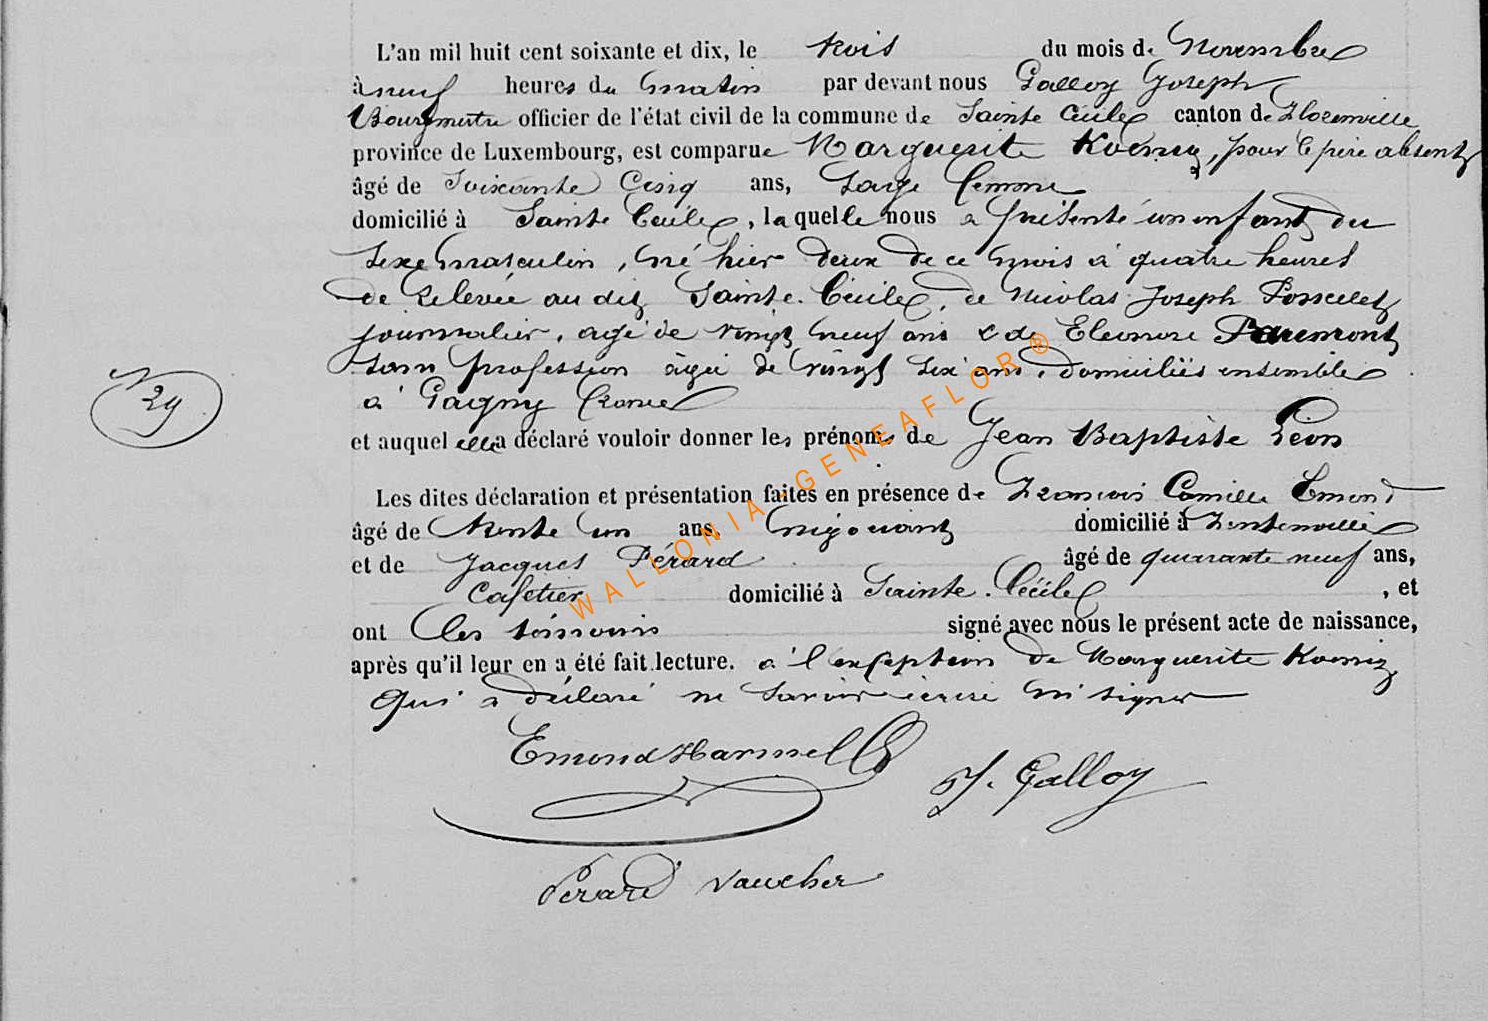 L'an mil huit cent soixante et dix, le trois du mois de Novembre
à neuf heures du matin par devant nous Galloy Joseph
Bourgmestre officier de l'état civil de la commune de Sainte Cécile canton de Florenville
province de Luxembourg, est comparue Marguerite Koenig, pour le père absent
âgé de Soixante Cinq ans, Sage femme
domicilié à Sainte Cécile, laquelle nous a présenté un enfant du
sexe masculin, né hier deux de ce mois à quatre heures
de relevée au dit Sainte-Cécile, de Nicolas Joseph Poncelet
journalier, agé de vingt neuf ans & de Eléonore
sans profession âgée de vingt six ans, domiciliés ensemble
à Gaigny France
et auquel elle a déclaré vouloir donner les prénoms de Jean Baptiste Léon
29
Les dites déclaration et présentation faites en présence de François Camille Emond
âgé de trente un ans, négociant domicilié à
et de Jacques Pérard âgé de quarante neuf ans,
Cafetier domicilié à Sainte-Cécile, et
ont les témoins signé avec nous le présent acte de naissance,
après qu'il leur en a été fait lecture. à l'exception de Marguerite Koenig
qui a déclaré ne savoir écrire ni signer
Emond Hammel
J. Galloy
Pérard Vaucher
WALLONIA-GENEAFLOR®